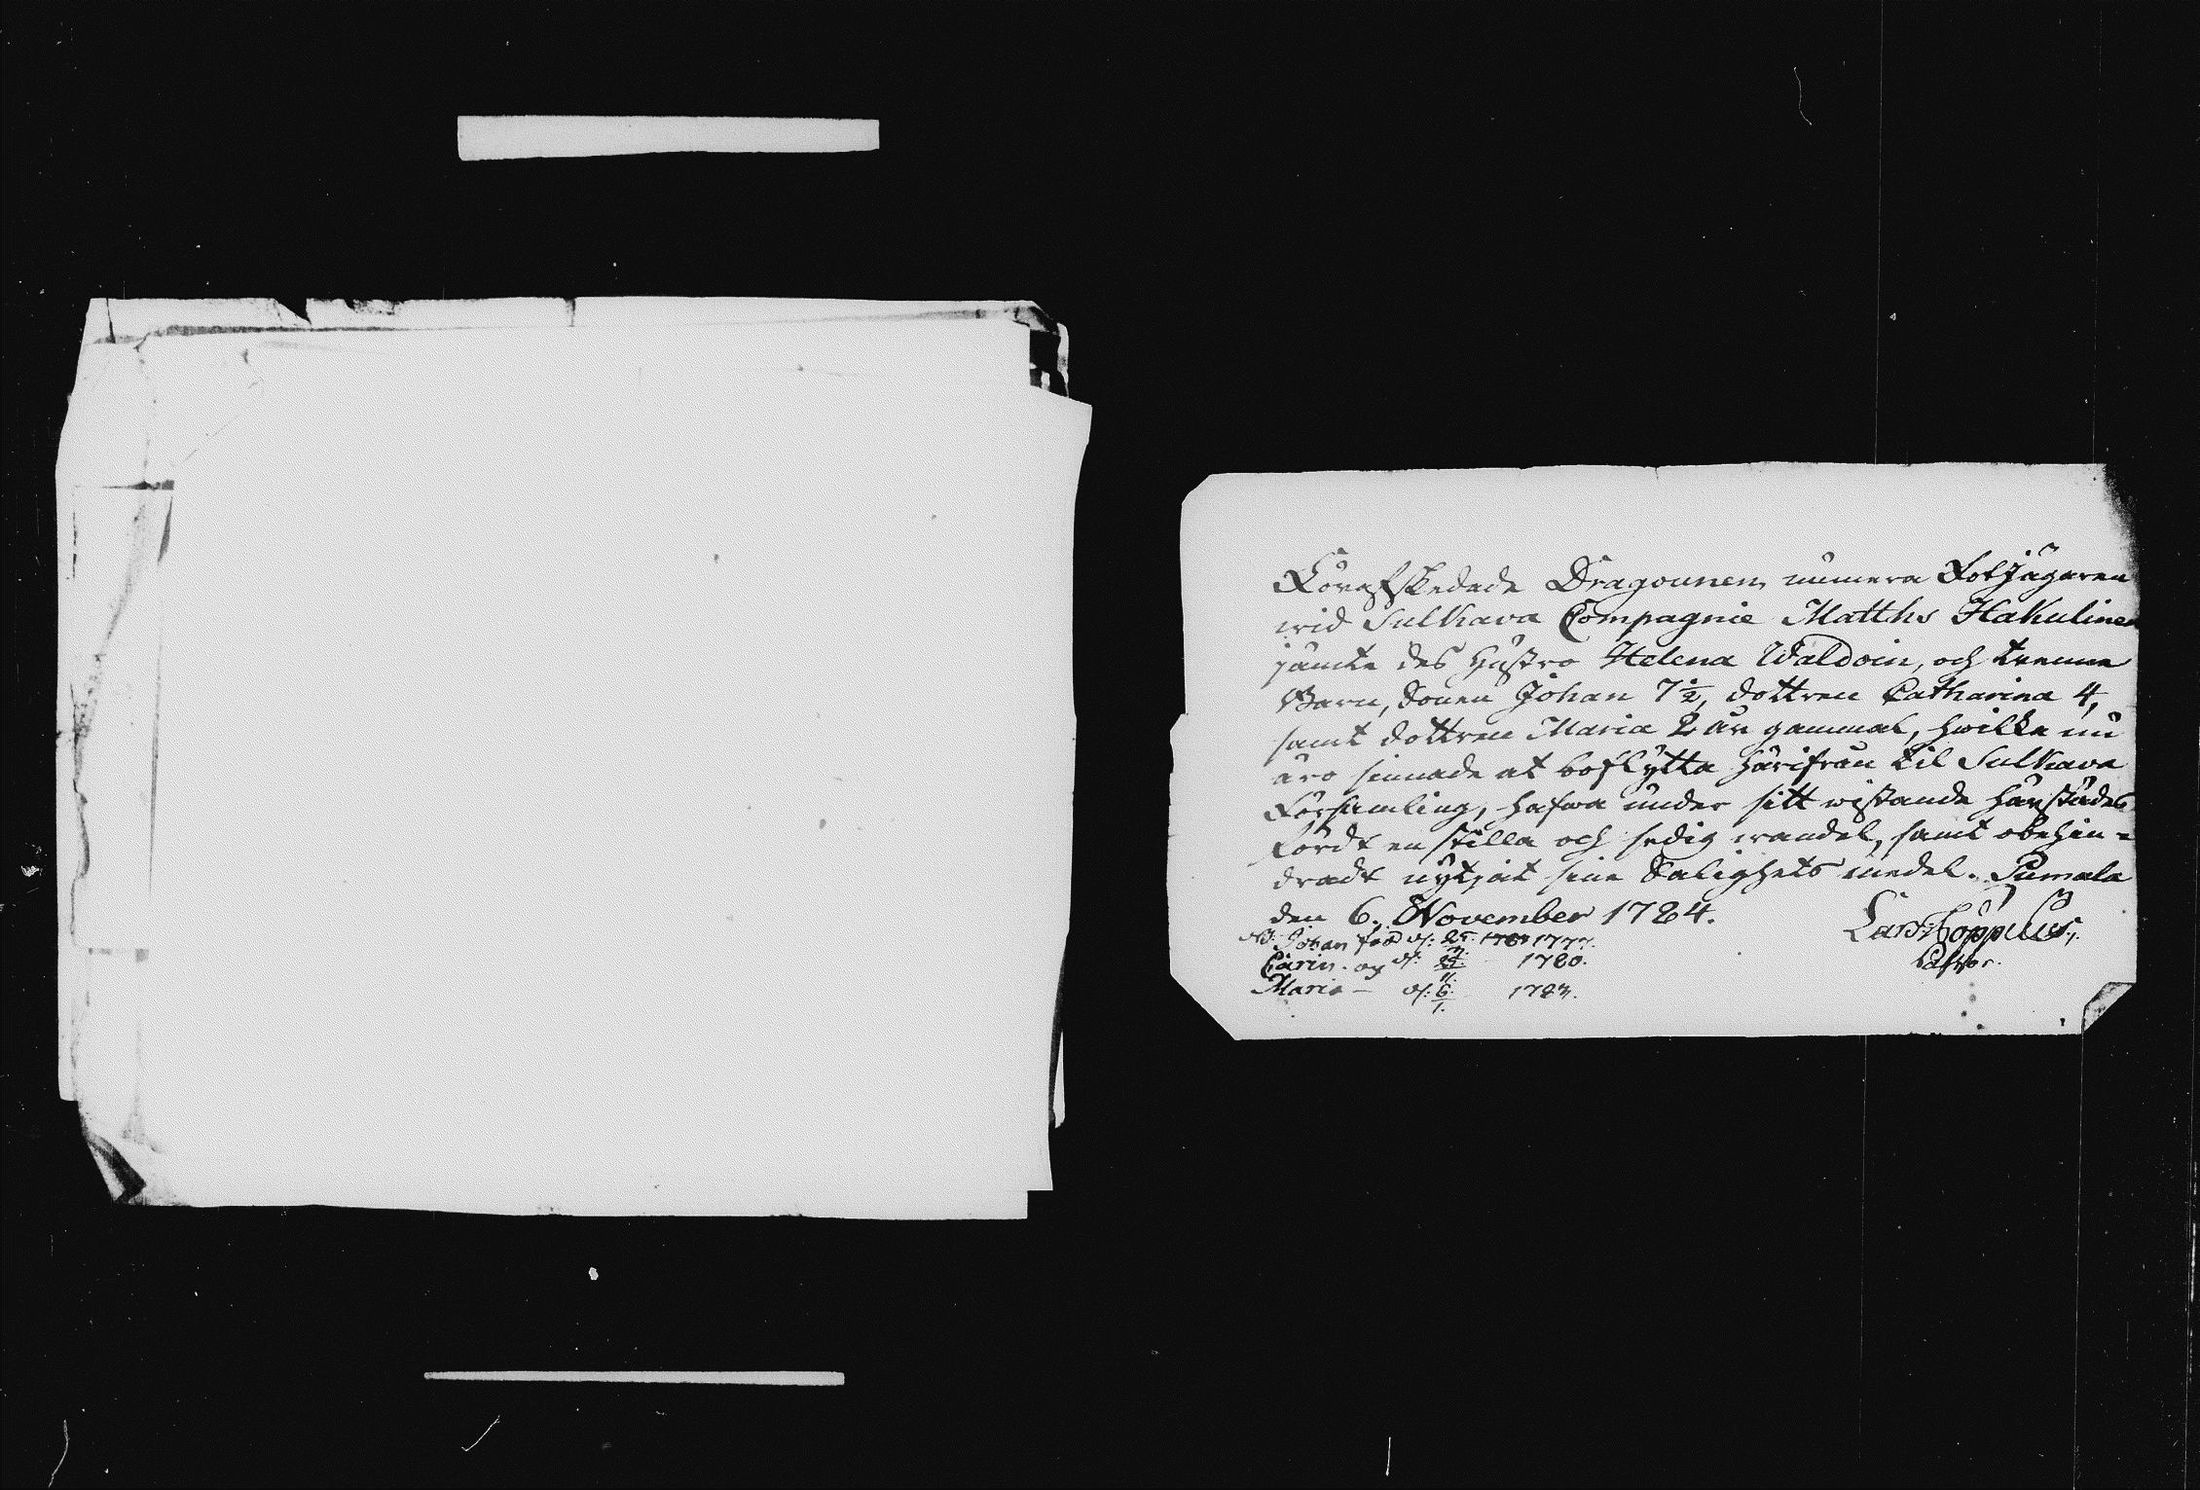 Förafskedade Dragounen, numera Fotjägaren
wid Sulkava Compagnie Matths Hakulinen
jämte des hustro Helena Waldoin, och trenne
Barn, Sonen Johan 7½, dottren Catharina 4,
samt dottren Maria 2 år gammal, hwilka nu
äro sinnade at boflytta härifrån til Sulkava
Församling, hafwa under sitt wistande härstädes
fördt en stilla och sedig wandel, samt obehin=
dradt nytjat sine Salighets medel. Pumala
den 6. November 1784.
Lars Poppius
Pastor.
NB. Johan född d: 25. 1777.
Carin d: 1780.
Maria – d: 6/1. 1783.